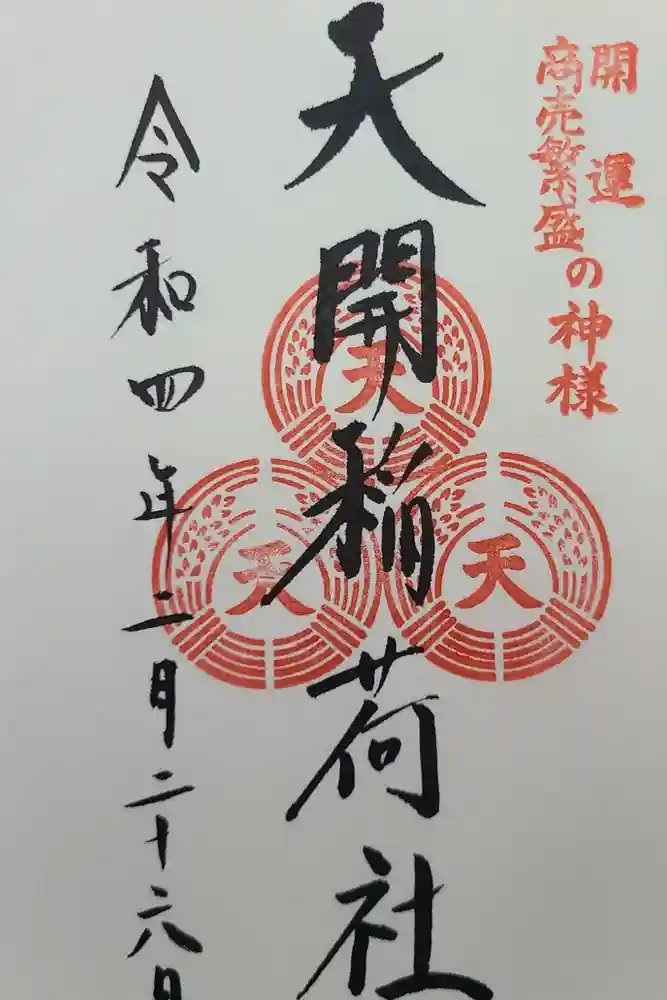 開運
商売繁盛
の神様
天開稲荷社
天
天
天
令和四年二月二十六日